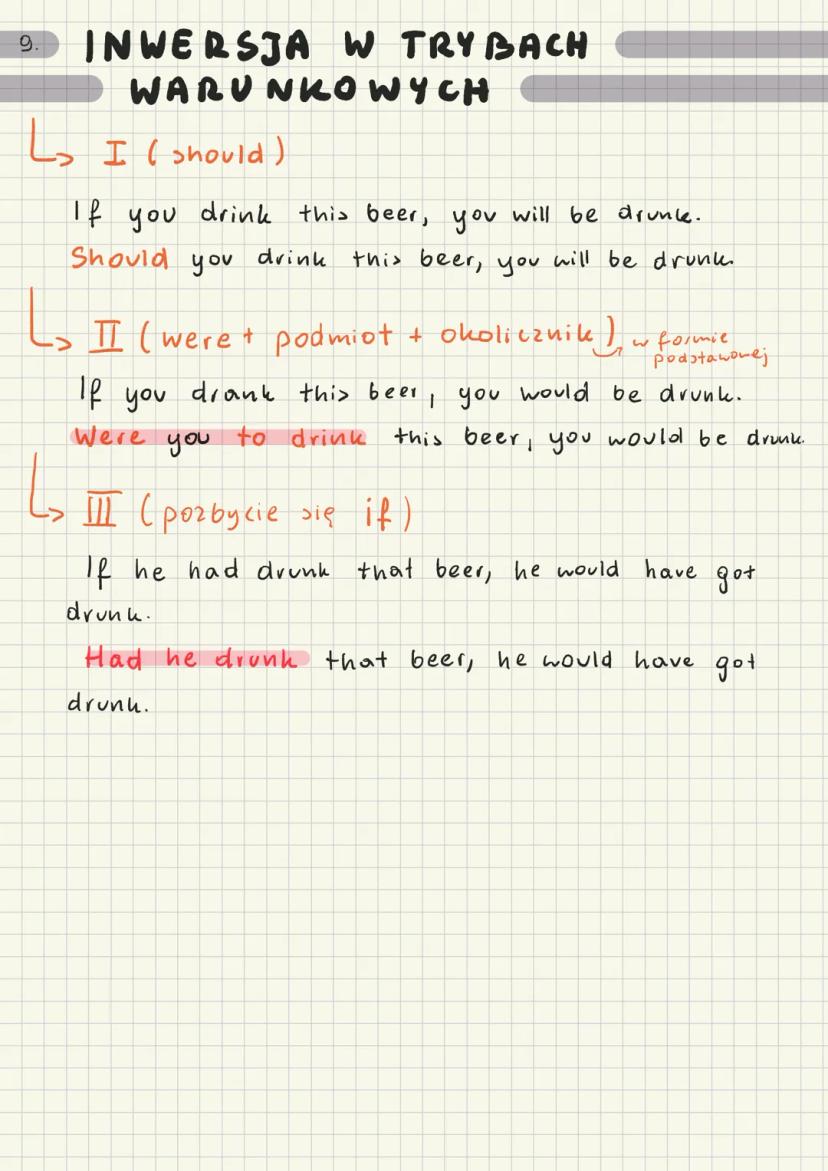 9. INWERSJA W TRYBACH
WARUNKOWYCH
I (should)
If you drink this beer, you will be drunk.
Should you drink this beer, you will be drunk.
II (were + podmiot + okolicznik) w formie
podstawowej
If you drank this beer, you would be drunk.
Were you to drink this beer, you would be drunk.
III (pozbycie się if)
If he had drunk that beer, he would have got
drunk.
Had he drunk that beer, he would have got
drunk.